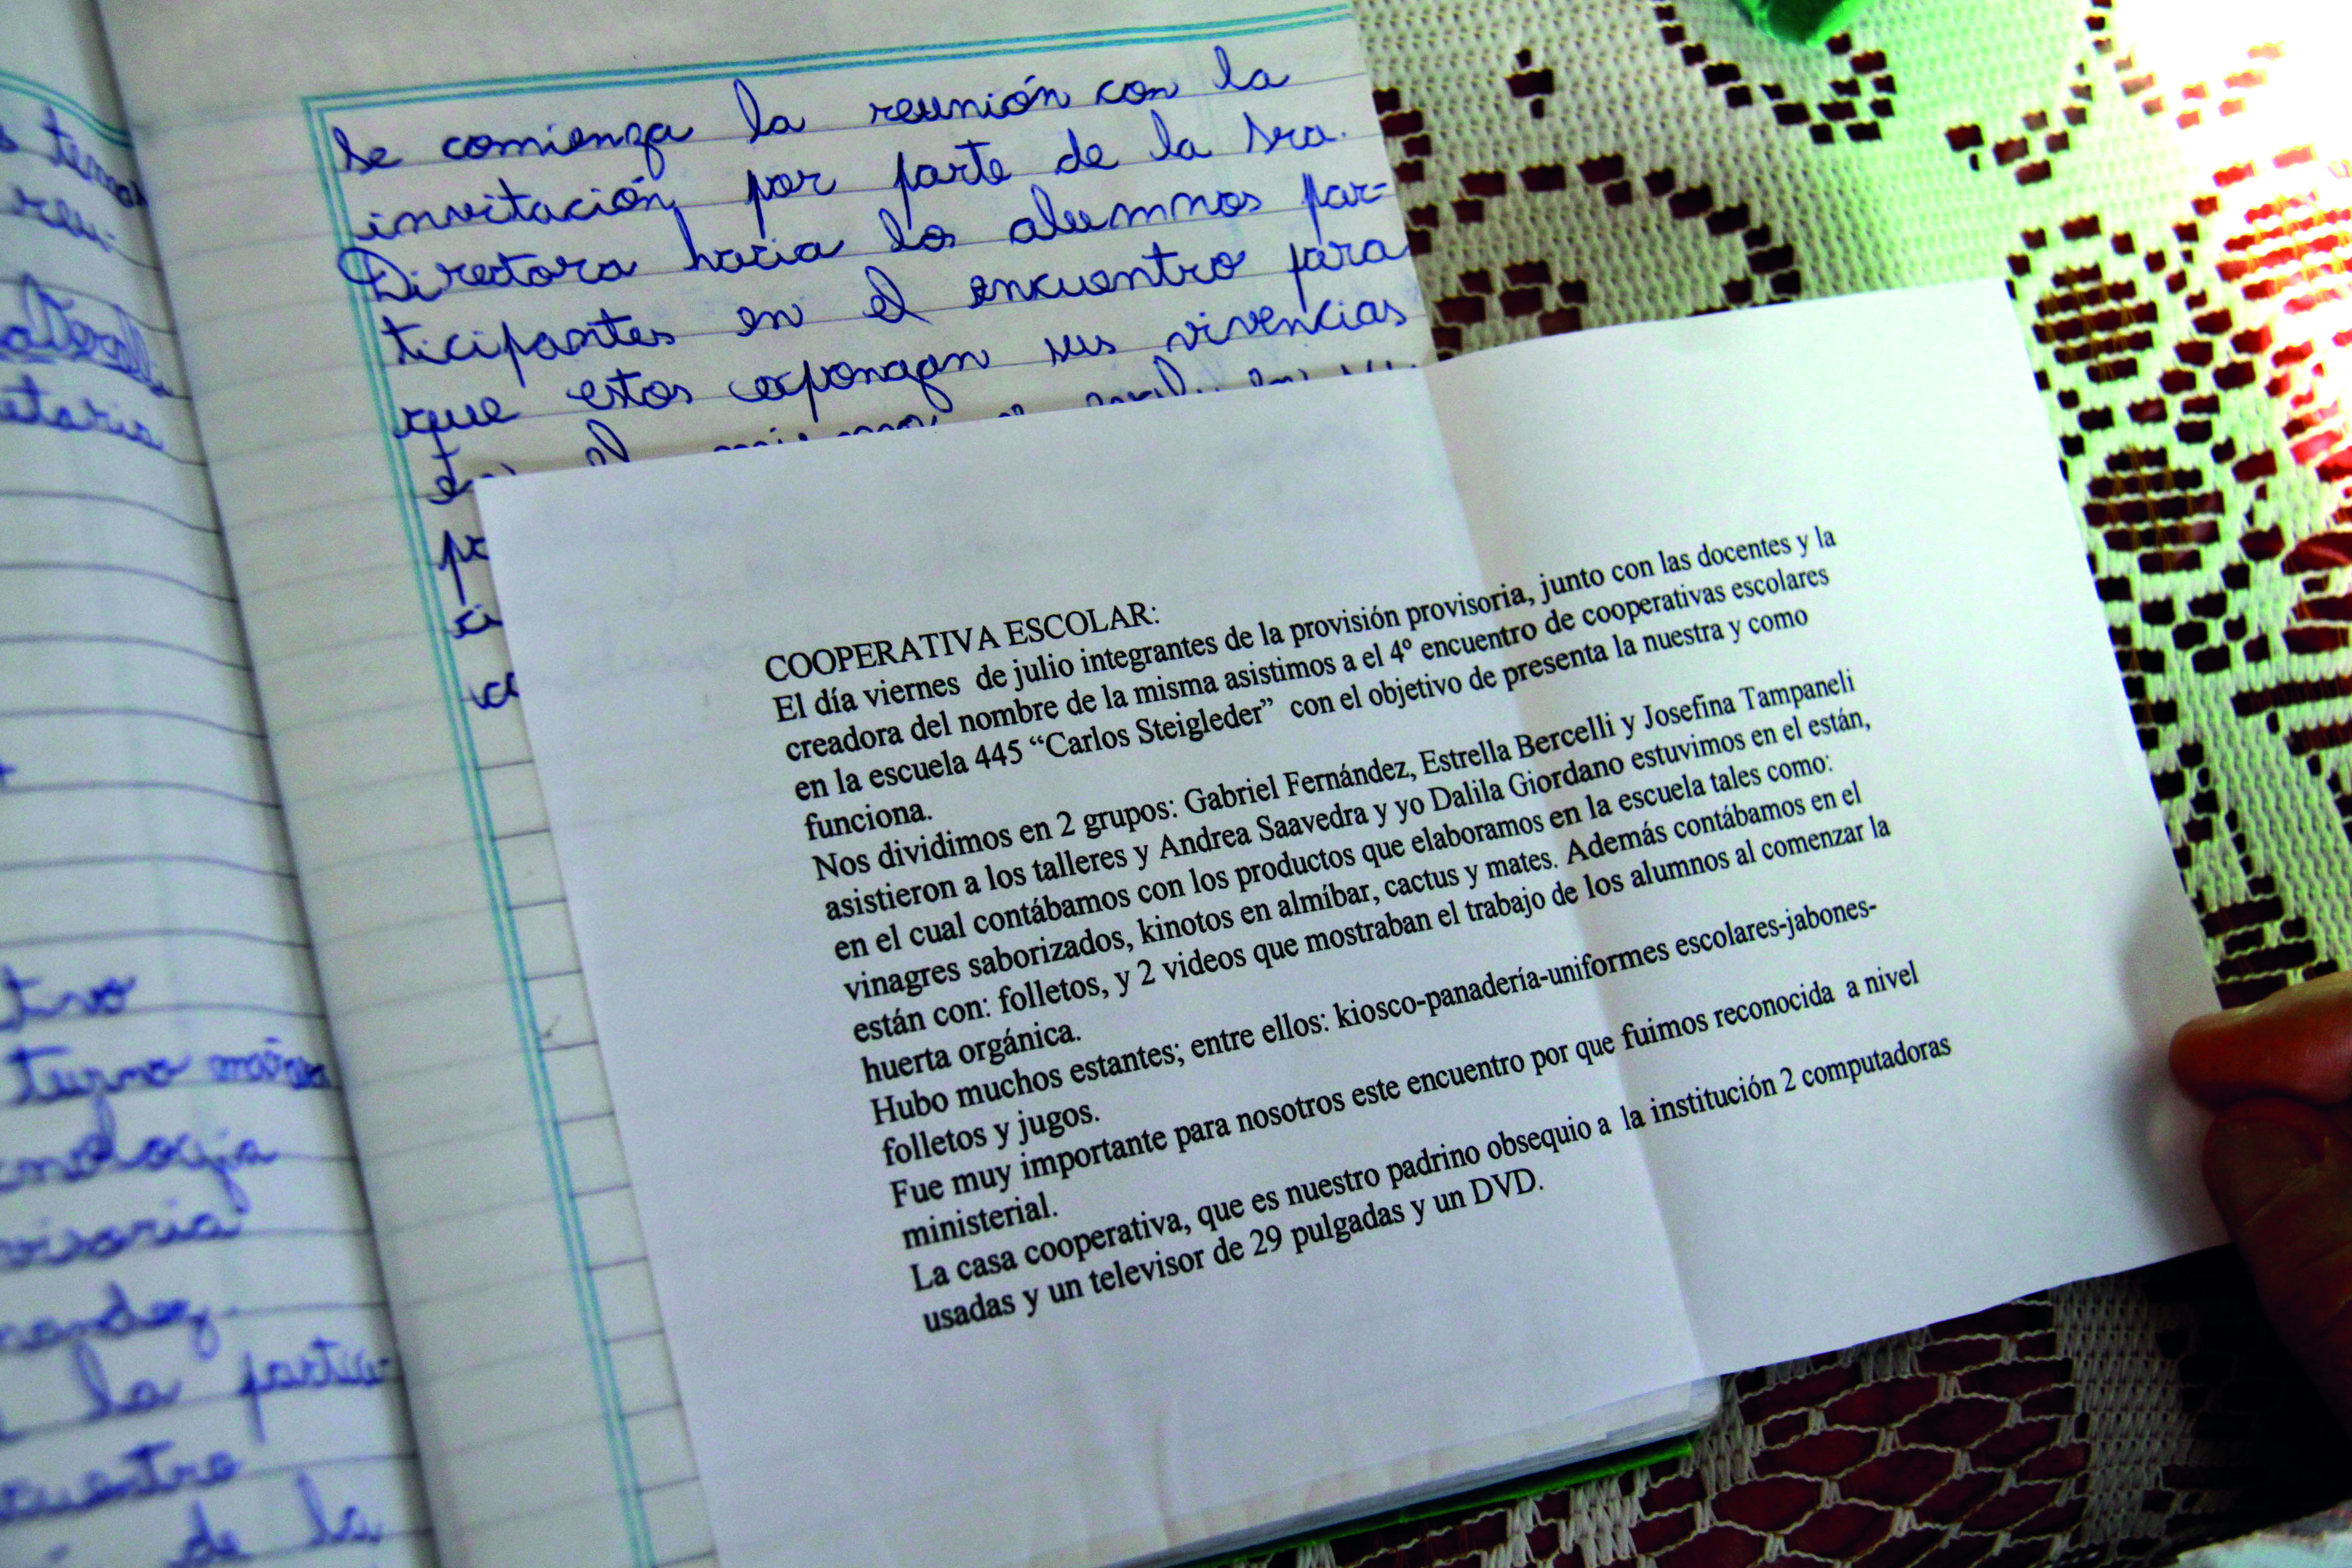 s temas
reu-
etaria
tivo
turno mañana
cnología
visoria
nandez
la partici-
cuentro
de la
se comienza la reunión con la
invitación por parte de la Sra.
Directora hacia los alumnos par-
ticipantes en el encuentro para
que estos expongan sus vivencias
en el
COOPERATIVA ESCOLAR:
El día viernes de julio integrantes de la provisión provisoria, junto con las docentes y la
creadora del nombre de la misma asistimos a el 4º encuentro de cooperativas escolares
en la escuela 445 “Carlos Steigleder” con el objetivo de presenta la nuestra y como
funciona.
Nos dividimos en 2 grupos: Gabriel Fernández, Estrella Bercelli y Josefina Tampaneli
asistieron a los talleres y Andrea Saavedra y yo Dalila Giordano estuvimos en el están,
en el cual contábamos con los productos que elaboramos en la escuela tales como:
vinagres saborizados, kinotos en almíbar, cactus y mates. Además contábamos en el
están con: folletos, y 2 videos que mostraban el trabajo de los alumnos al comenzar la
huerta orgánica.
Hubo muchos estantes; entre ellos: kiosco-panadería-uniformes escolares-jabones-
folletos y jugos.
Fue muy importante para nosotros este encuentro por que fuimos reconocida a nivel
ministerial.
La casa cooperativa, que es nuestro padrino obsequio a la institución 2 computadoras
usadas y un televisor de 29 pulgadas y un DVD.